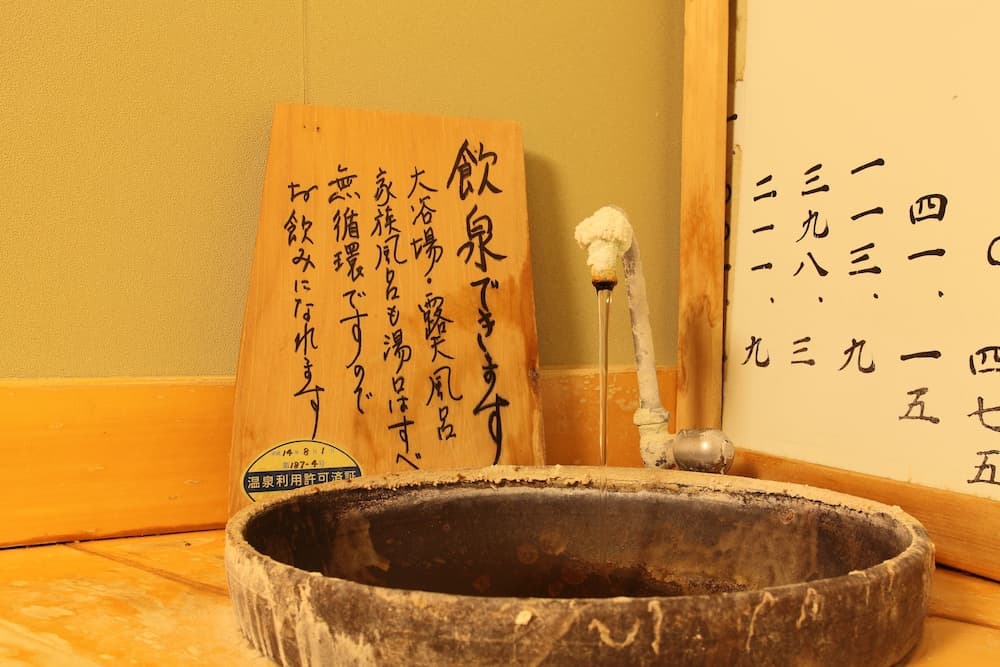 飲泉できます
大浴場・露天風呂
家族風呂も湯口はすべ
無循環ですので
お飲みになれます
14年8月1日
第187-4号
温泉利用許可済証
四七五
四一.一五
一一三.九
三九八.三
二一一.九